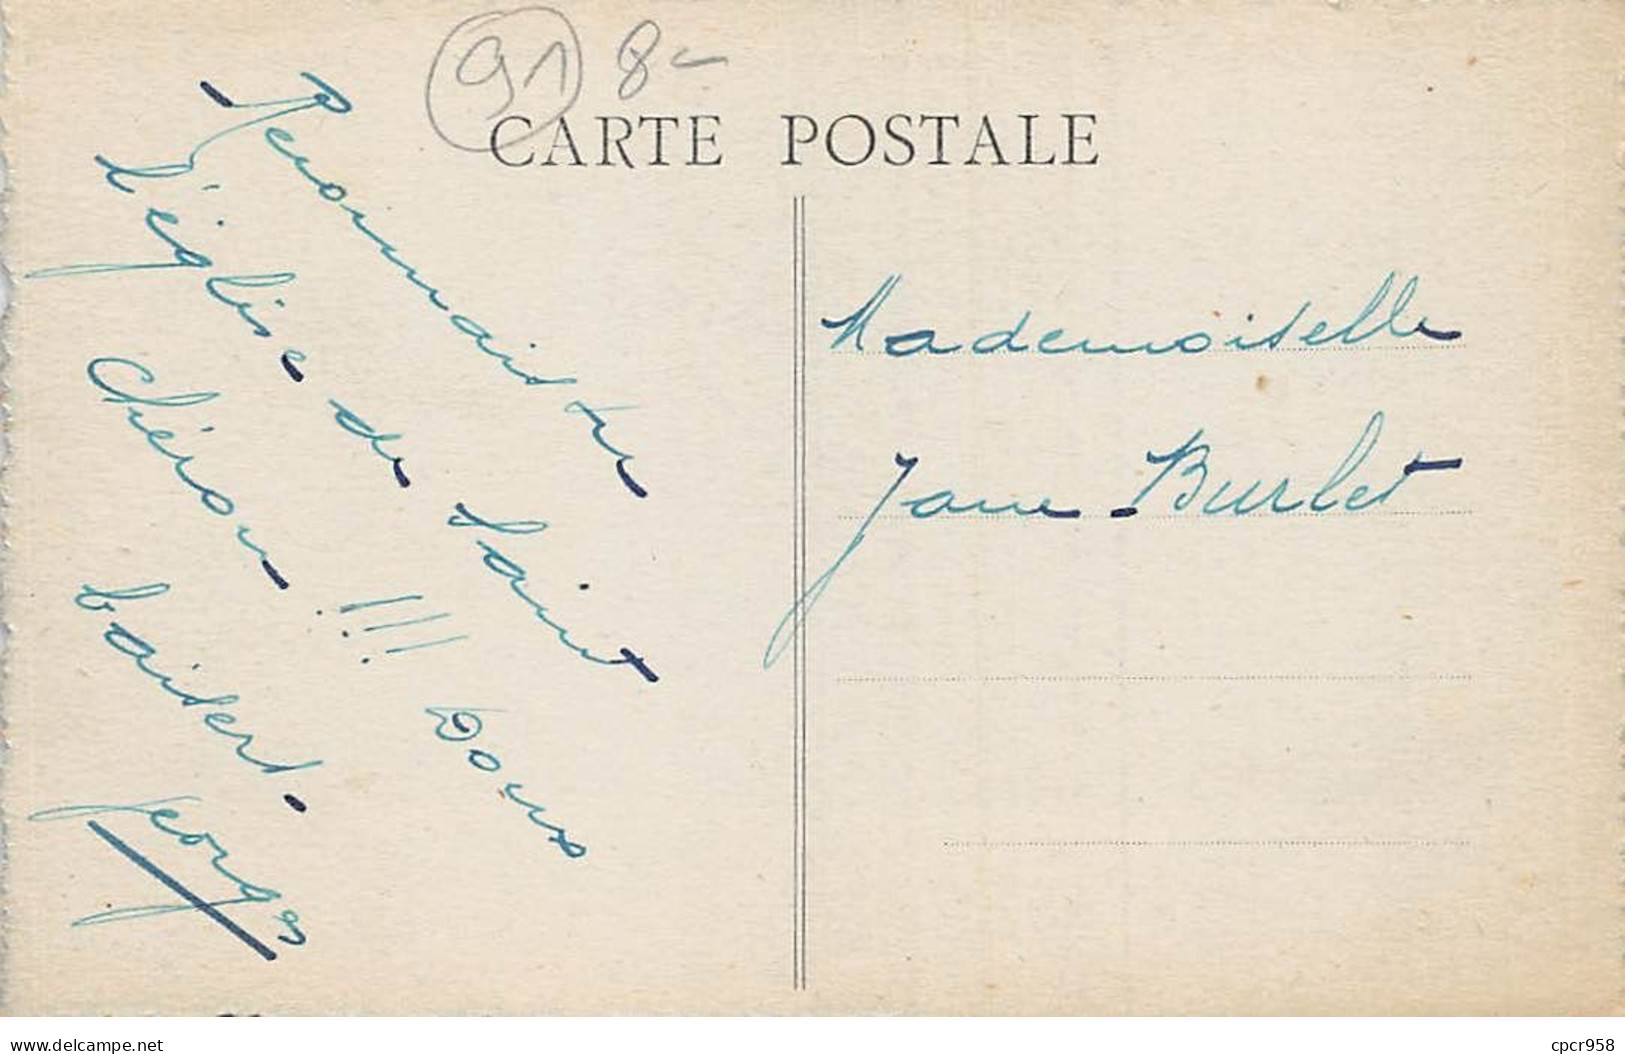 91 8-
CARTE POSTALE
Reconnais tu
l'église de Saint
Chéron !!!! Doux
baisers.
Georges
Mademoiselle
Jane Burlet
www.delcampe.net
cpcr958